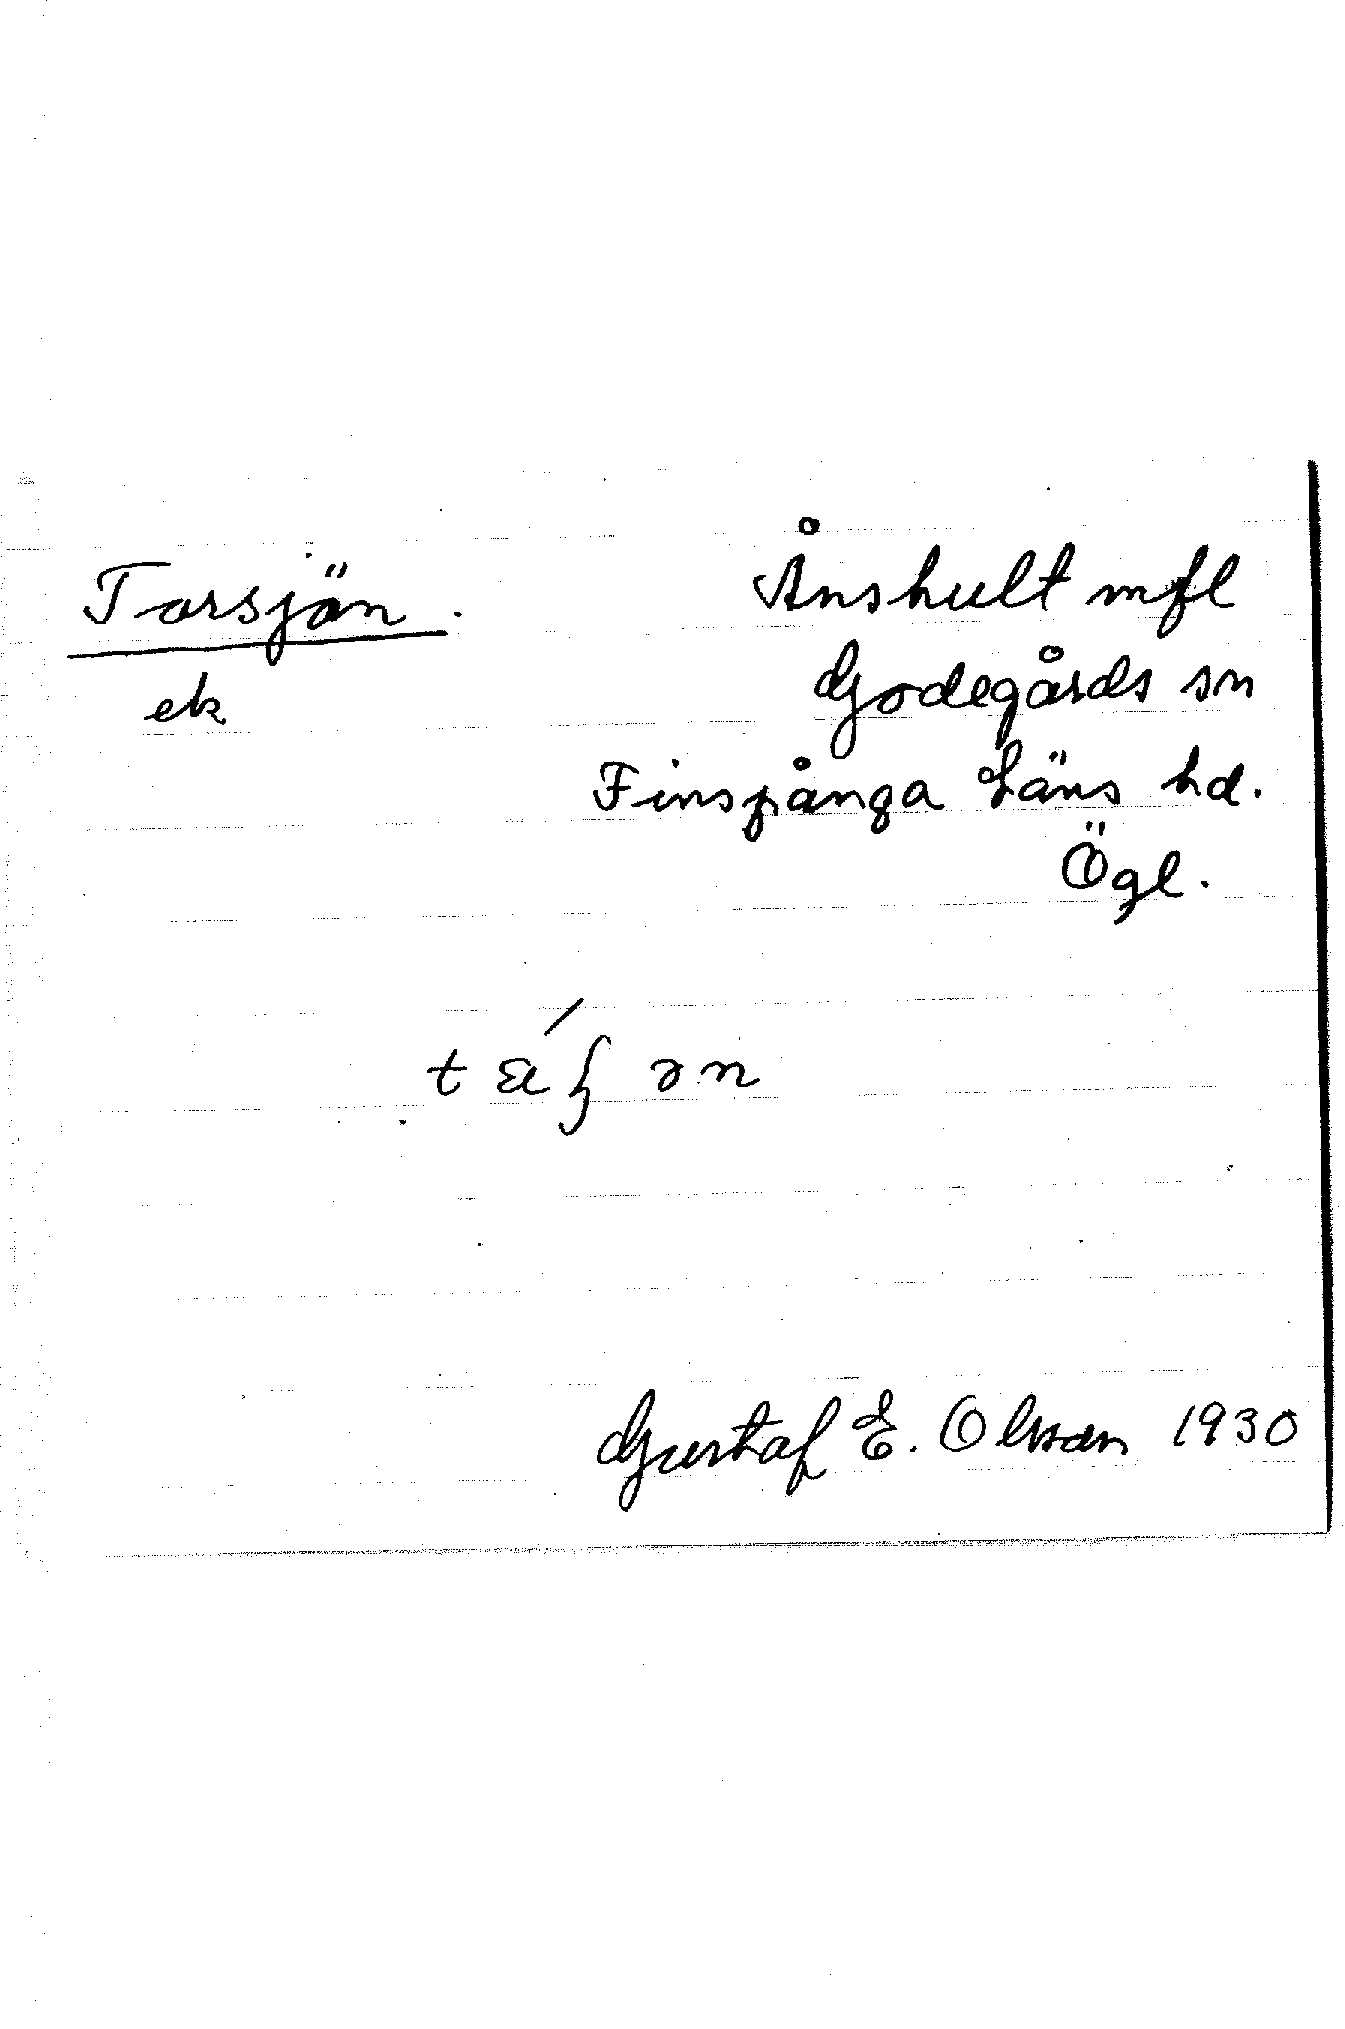 Torsjön.
ek
Ånshult mfl
Godegårds sn
Finspånga Läns hd.
Ögl.
Gustaf E. Olsson 1930